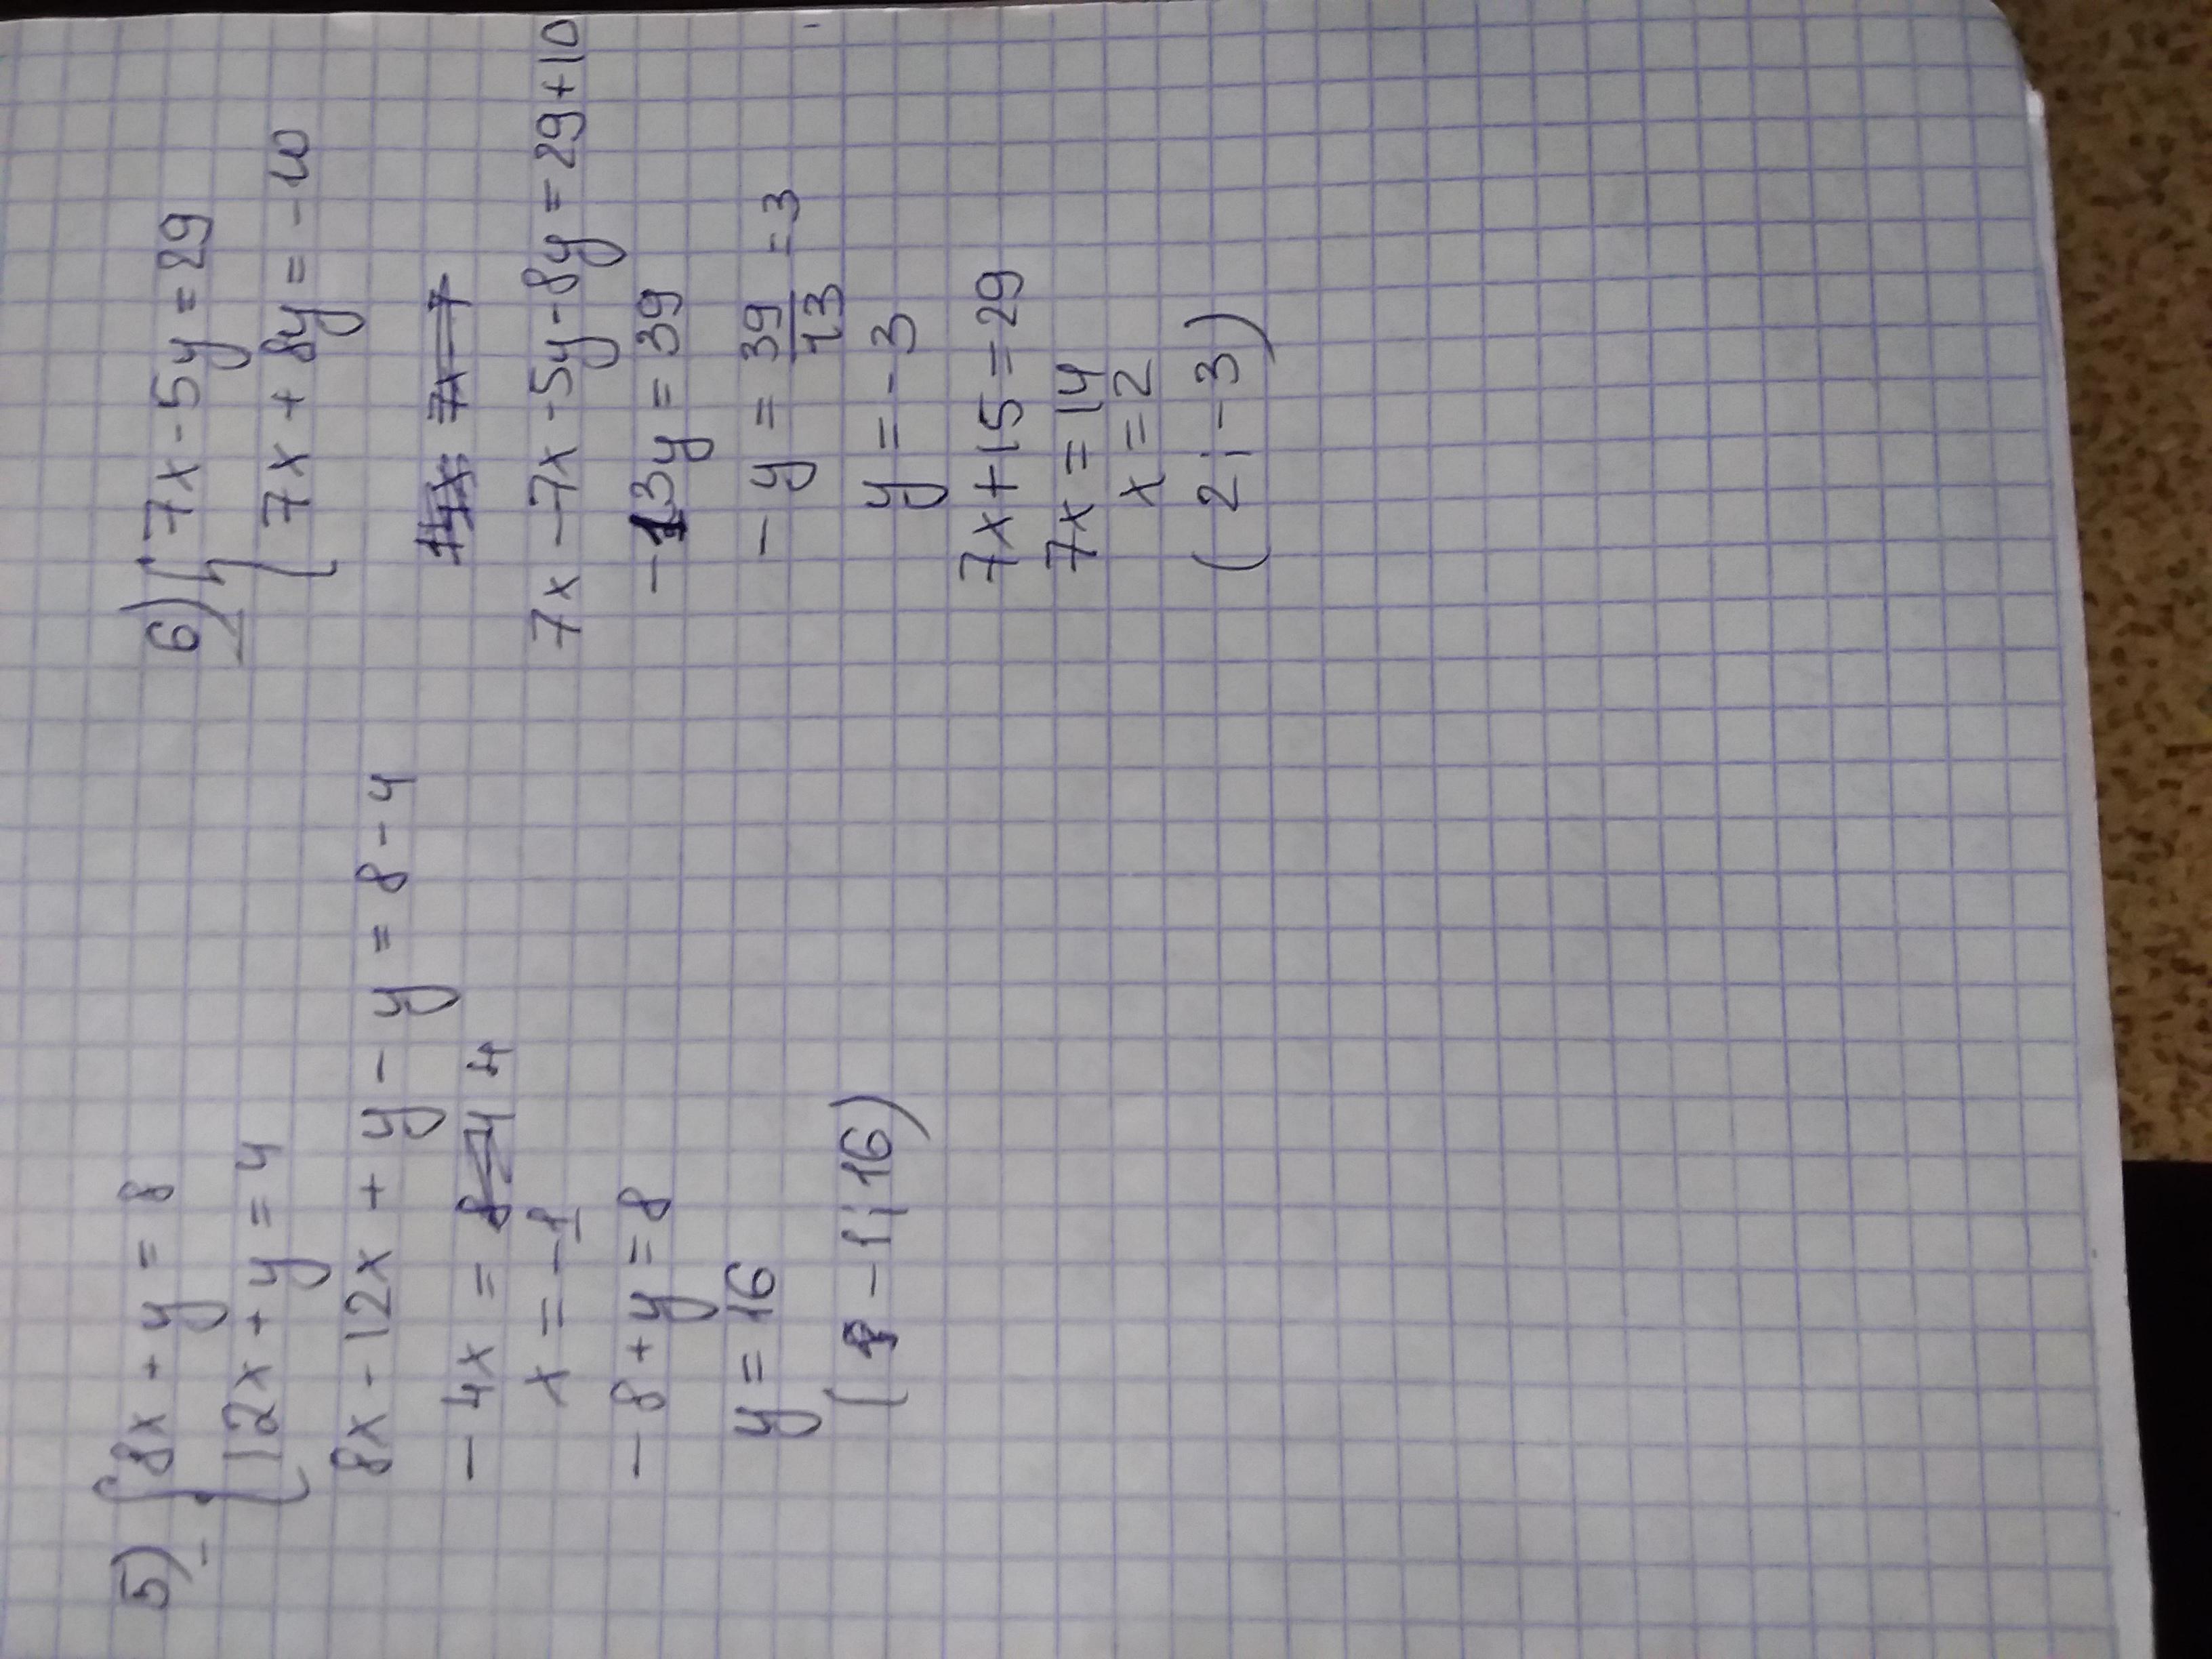 5) { 8x + y = 8
12x + y = 4
8x - 12x + y - y = 8 - 4
- 4x = 4
x = -1
- 8 + y = 8
y = 16
( -1; 16)
6) { 7x - 5y = 29
7x + 8y = -10
7x - 7x - 5y - 8y = 29 + 10
-13y = 39
- y = 39/13 = 3
y = - 3
7x + 15 = 29
7x = 14
x = 2
( 2 ; -3)